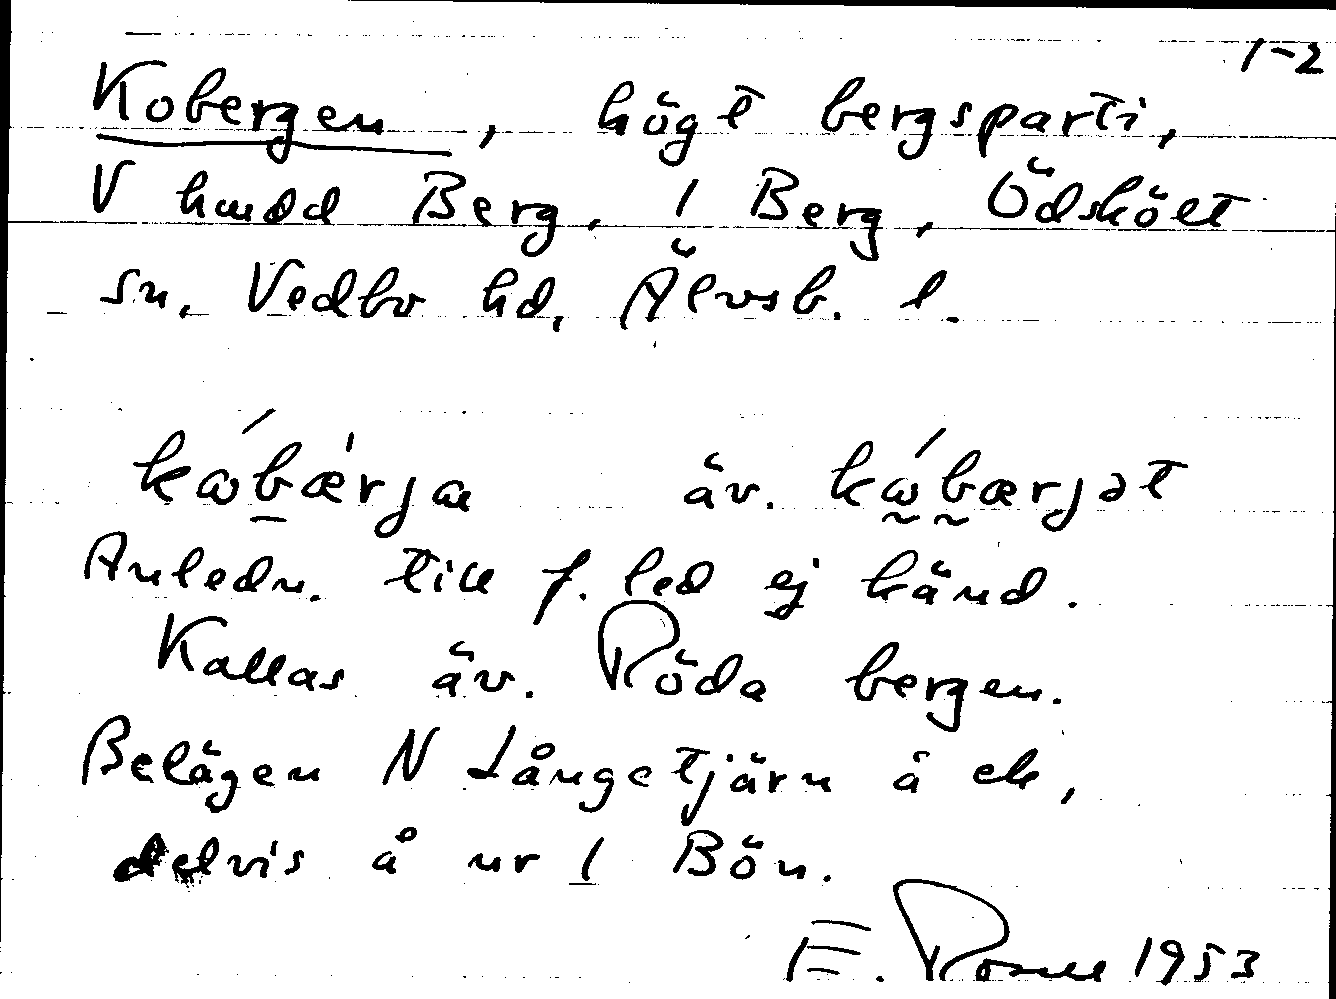 1-2
Kobergen, högt bergsparti,
V hmdd Berg. 1 Berg, Ödskölt
sn, Vedbo hd, Älvsb. l.
kωbærja äv. kωbærjət
Anledn. till f. led ej känd.
Kallas äv. Röda bergen.
Belägen N Långetjärn å ek,
delvis å nr 1 Bön.
E. 1953